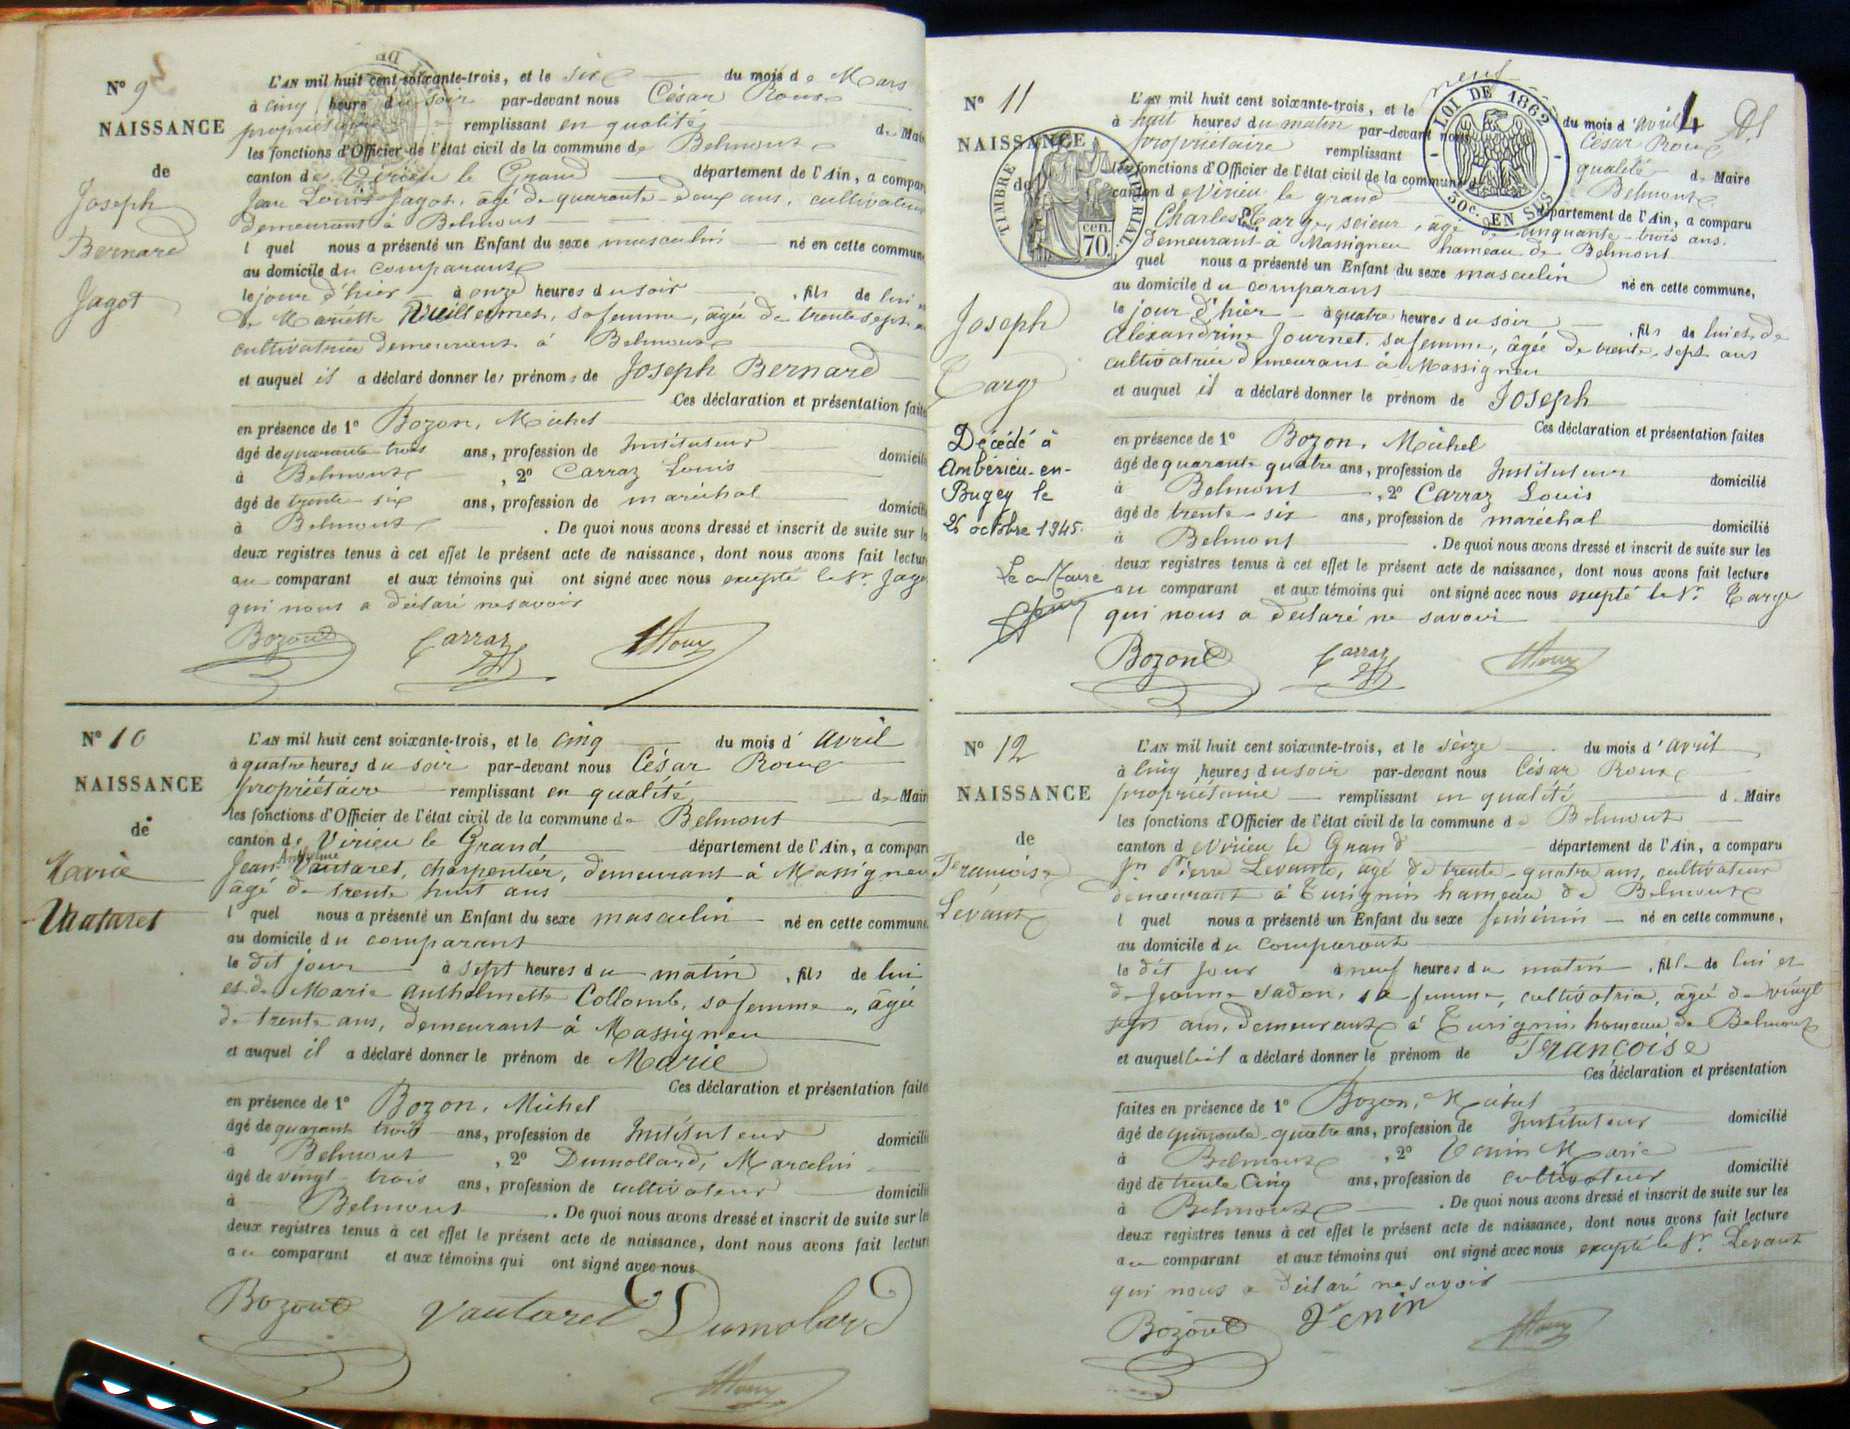 N° 9
NAISSANCE
de
Joseph
Bernard
Jagot
L'AN mil huit cent soixante-trois, et le six du mois de Mars
à cinq heures du soir par-devant nous César Roux
propriétaire remplissant en qualité de Maire
les fonctions d'Officier de l'état civil de la commune de Belmont
canton de Virieu le Grand département de l'Ain, a comparu
Jean Louis Jagot, âgé de quarante-deux ans, cultivateur
demeurant à Belmont
lequel nous a présenté un Enfant du sexe masculin né en cette commune
au domicile du comparant
le jour d'hier à onze heures du soir, fils de lui et
de Mariette, sa femme, âgée de trente sept
cultivatrice demeurant à Belmont
et auquel il a déclaré donner les prénoms de Joseph Bernard
Ces déclaration et présentation faites
en présence de 1° Bozon, Michel
âgé de quarante trois ans, profession de Instituteur domicilié
à Belmont, 2° Carraz Louis
âgé de trente-six ans, profession de maréchal domicilié
à Belmont. De quoi nous avons dressé et inscrit de suite sur les
deux registres tenus à cet effet le présent acte de naissance, dont nous avons fait lecture
au comparant et aux témoins qui ont signé avec nous excepté le Sr. Jagot
qui nous a déclaré ne savoir
Bozon Carraz Roux
N° 10
NAISSANCE
de
Marie
Vautaret
L'AN mil huit cent soixante-trois, et le cinq du mois d'avril
à quatre heures du soir par-devant nous César Roux
propriétaire remplissant en qualité de Maire
les fonctions d'Officier de l'état civil de la commune de Belmont
canton de Virieu le Grand département de l'Ain, a comparu
Anthelme
Jean Vautaret, charpentier, demeurant à Massignieu
âgé de trente huit ans
lequel nous a présenté un Enfant du sexe masculin né en cette commune
au domicile du comparant
le dit jour à sept heures du matin, fils de lui
et de Marie Anthelmette Collomb, sa femme, âgée
de trente ans, demeurant à Massignieu
et auquel il a déclaré donner le prénom de Marie
Ces déclaration et présentation faites
en présence de 1° Bozon, Michel
âgé de quarante trois ans, profession de Instituteur domicilié
à Belmont, 2° Dumolland, Marcelin
âgé de vingt-trois ans, profession de cultivateur domicilié
à Belmont. De quoi nous avons dressé et inscrit de suite sur les
deux registres tenus à cet effet le présent acte de naissance, dont nous avons fait lecture
au comparant et aux témoins qui ont signé avec nous
Bozon Vautaret Dumolard
Roux
N° 11
NAISSANCE
de
Joseph
Targe
Décédé à
Ambérieu-en-
Bugey le
26 octobre 1945.
Le Maire
TIMBRE IMPÉRIAL
cen.
70.
LOI DE 1862
50c. EN SUS
4
neuf
L'AN mil huit cent soixante-trois, et le du mois d'avril
à huit heures du matin par-devant nous César Roux
propriétaire remplissant qualité de Maire
les fonctions d'Officier de l'état civil de la commune de Belmont
canton de Virieu le grand département de l'Ain, a comparu
Charles Targe, scieur, âgé de cinquante-trois ans
demeurant à Massignieu hameau de Belmont
quel nous a présenté un Enfant du sexe masculin né en cette commune,
au domicile du comparant
le jour d'hier à quatre heures du soir, fils de lui et de
Alexandrine Journet, sa femme, âgée de trente-sept ans
cultivatrice demeurant à Massignieu
et auquel il a déclaré donner le prénom de Joseph
Ces déclaration et présentation faites
en présence de 1° Bozon, Michel
âgé de quarante quatre ans, profession de Instituteur domicilié
à Belmont, 2° Carraz Louis
âgé de trente-six ans, profession de maréchal domicilié
à Belmont. De quoi nous avons dressé et inscrit de suite sur les
deux registres tenus à cet effet le présent acte de naissance, dont nous avons fait lecture
au comparant et aux témoins qui ont signé avec nous excepté le Sr. Targe
qui nous a déclaré ne savoir
Bozon Carraz Roux
N° 12
NAISSANCE
de
Françoise
Levant
L'AN mil huit cent soixante-trois, et le seize du mois d'avril
à cinq heures du soir par-devant nous César Roux
propriétaire remplissant en qualité de Maire
les fonctions d'Officier de l'état civil de la commune de Belmont
canton de Virieu le Grand département de l'Ain, a comparu
Jn. Pierre Levant, âgé de trente-quatre ans, cultivateur
demeurant à Eurignin hameau de Belmont
lequel nous a présenté un Enfant du sexe féminin né en cette commune,
au domicile du comparant
le dit jour à neuf heures du matin, fille de lui et
de Jeanne, sa femme, cultivatrice, âgée de vingt
sept ans, demeurant à Eurignin hameau de Belmont
et auquel il a déclaré donner le prénom de Françoise
Ces déclaration et présentation
faites en présence de 1° Bozon, Michel
âgé de quarante-quatre ans, profession de Instituteur domicilié
à Belmont, 2° Venin Marie
âgé de trente cinq ans, profession de cultivateur domicilié
à Belmont. De quoi nous avons dressé et inscrit de suite sur les
deux registres tenus à cet effet le présent acte de naissance, dont nous avons fait lecture
au comparant et aux témoins qui ont signé avec nous excepté le Sr. Levant
qui nous a déclaré ne savoir
Bozon Venin Roux